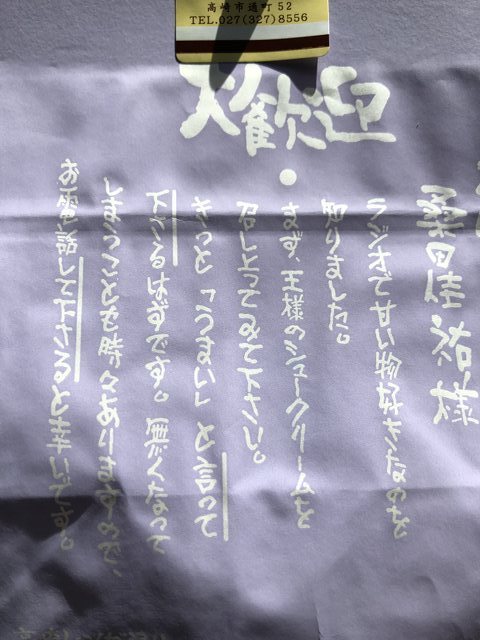 高崎市通町52
TEL.027(327)8556
大歓迎
桑田佳祐様
ラジオで甘い物好きなのを
知りました。
まず、王様のシュークリームを
召しとってみて下さい。
きっと「うまい」と言って
下さるはずです。無くなって
しまうことも時々ありますので、
お電話して下さると幸いです。